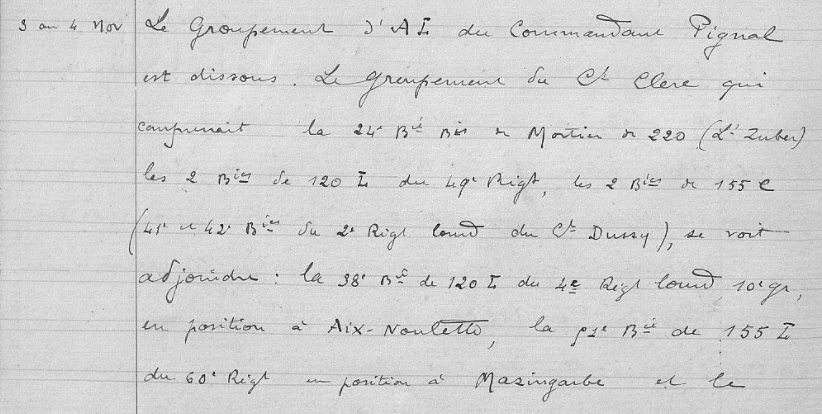 3 au 4 Nov Le Groupement d'AL du Commandant Pignal
est dissous. Le Groupement du Ct Clerc qui
comprenait la 24e Bie Bis de Mortier de 220 (Lt Zuber)
les 2 Bies de 120 L du 49e Rigt, les 2 Bies de 155 C
(41e et 42e Bies du 2e Rigt lourd du Ct Dussy), se voit
adjoindre : la 38e Bie de 120 L du 4e Rigt lourd 10e gr,
en position à Aix-Noulette, la Bie de 155 L
du 60e Rigt en position à Mazingarbe et le